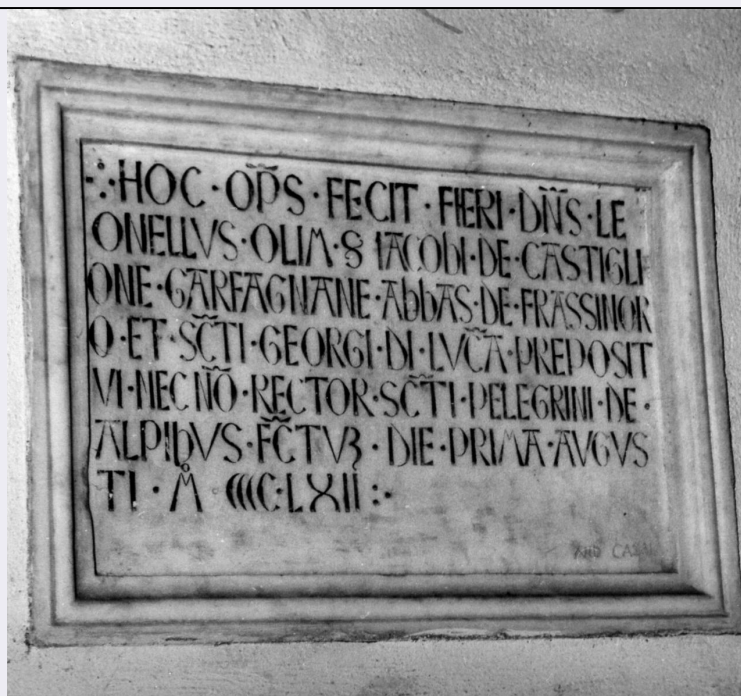 ·:·HOC·OP̃S·FECIT·FIERI·DÑS·LE
ONELLVS·OLIM·S IACObI·DE·CASTIGLI
ONE·GARFAGNANE·AbbAS·DE·FRASSINOR
O·ET·SC̃TI·GEORGI·DI·LVC̃A·PREPOSIT
VI·NEC NÕ·RECTOR·SC̃TI·PELEGRINI·DE·
ALPIbVS·FC̃TVȝ·DIE·PRIMA·AVGVS
TI·M̊ CCCC·LXII:·